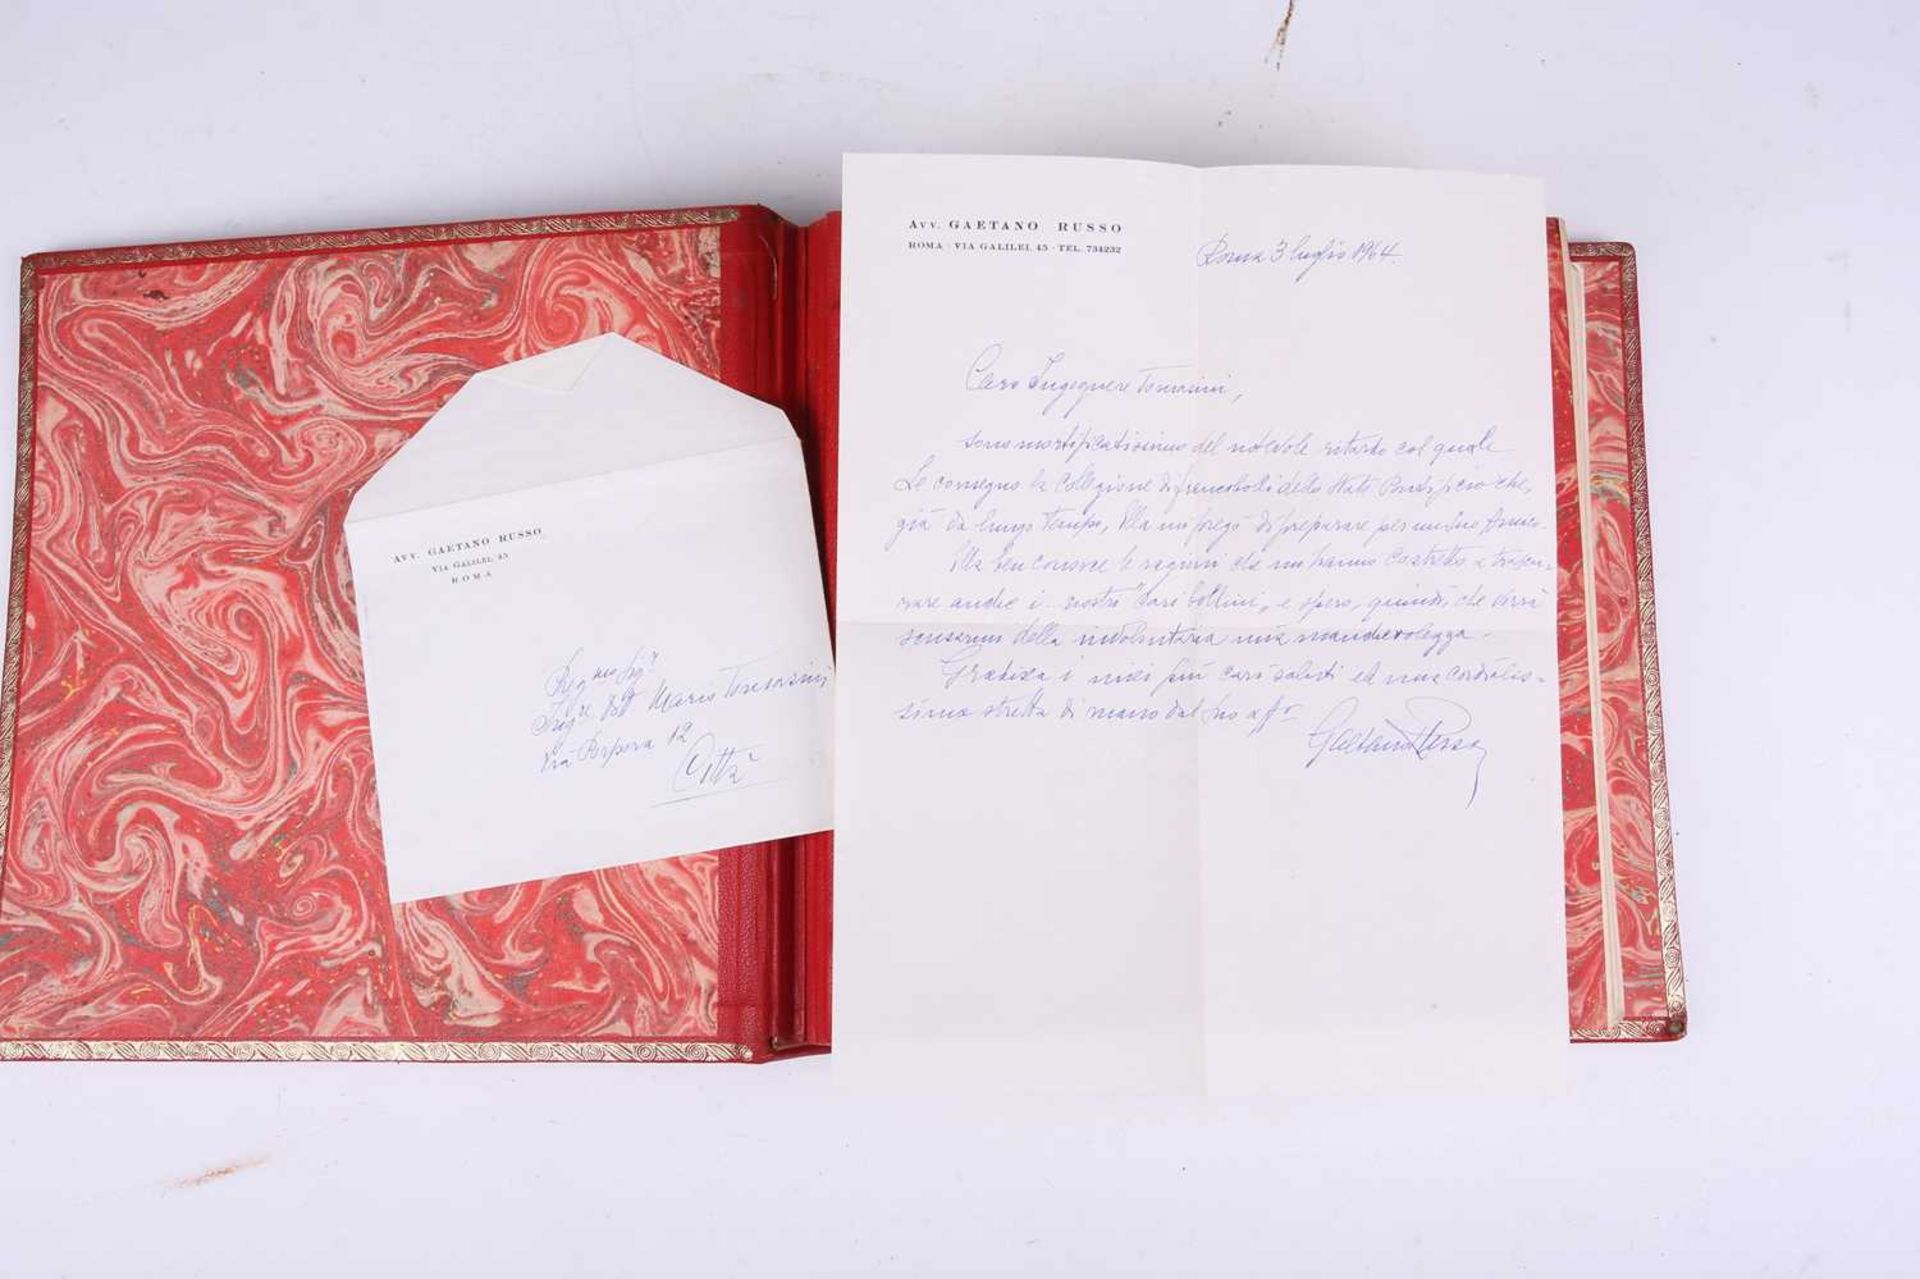 Avv. GAETANO RUSSO
VIA GALILEI, 45
ROMA
Preg.mo Sig.r
Ing.re Dott Mario Tomasini
Via Porpora 12
Città
Avv. GAETANO RUSSO
ROMA - VIA GALILEI, 45 - TEL. 734232
Roma 3 luglio 1964.
Caro Ingegnere Tomasini,
sono mortificatissimo del notevole ritardo col quale
Le consegno la Collezione di francobolli dello Stato Pontificio che,
già da lungo tempo, Ella mi pregò di preparare per un Suo
Ella ben conosce le ragioni che mi hanno costretto a trascu-
rare anche i.. nostri "cari bollini", e spero, quindi, che vorrà
scusarmi della involontaria mia manchevolezza.
Gradisca i miei più cari saluti ed una cordialis-
sima stretta di mano dal Suo aff.mo
Gaetano Russo